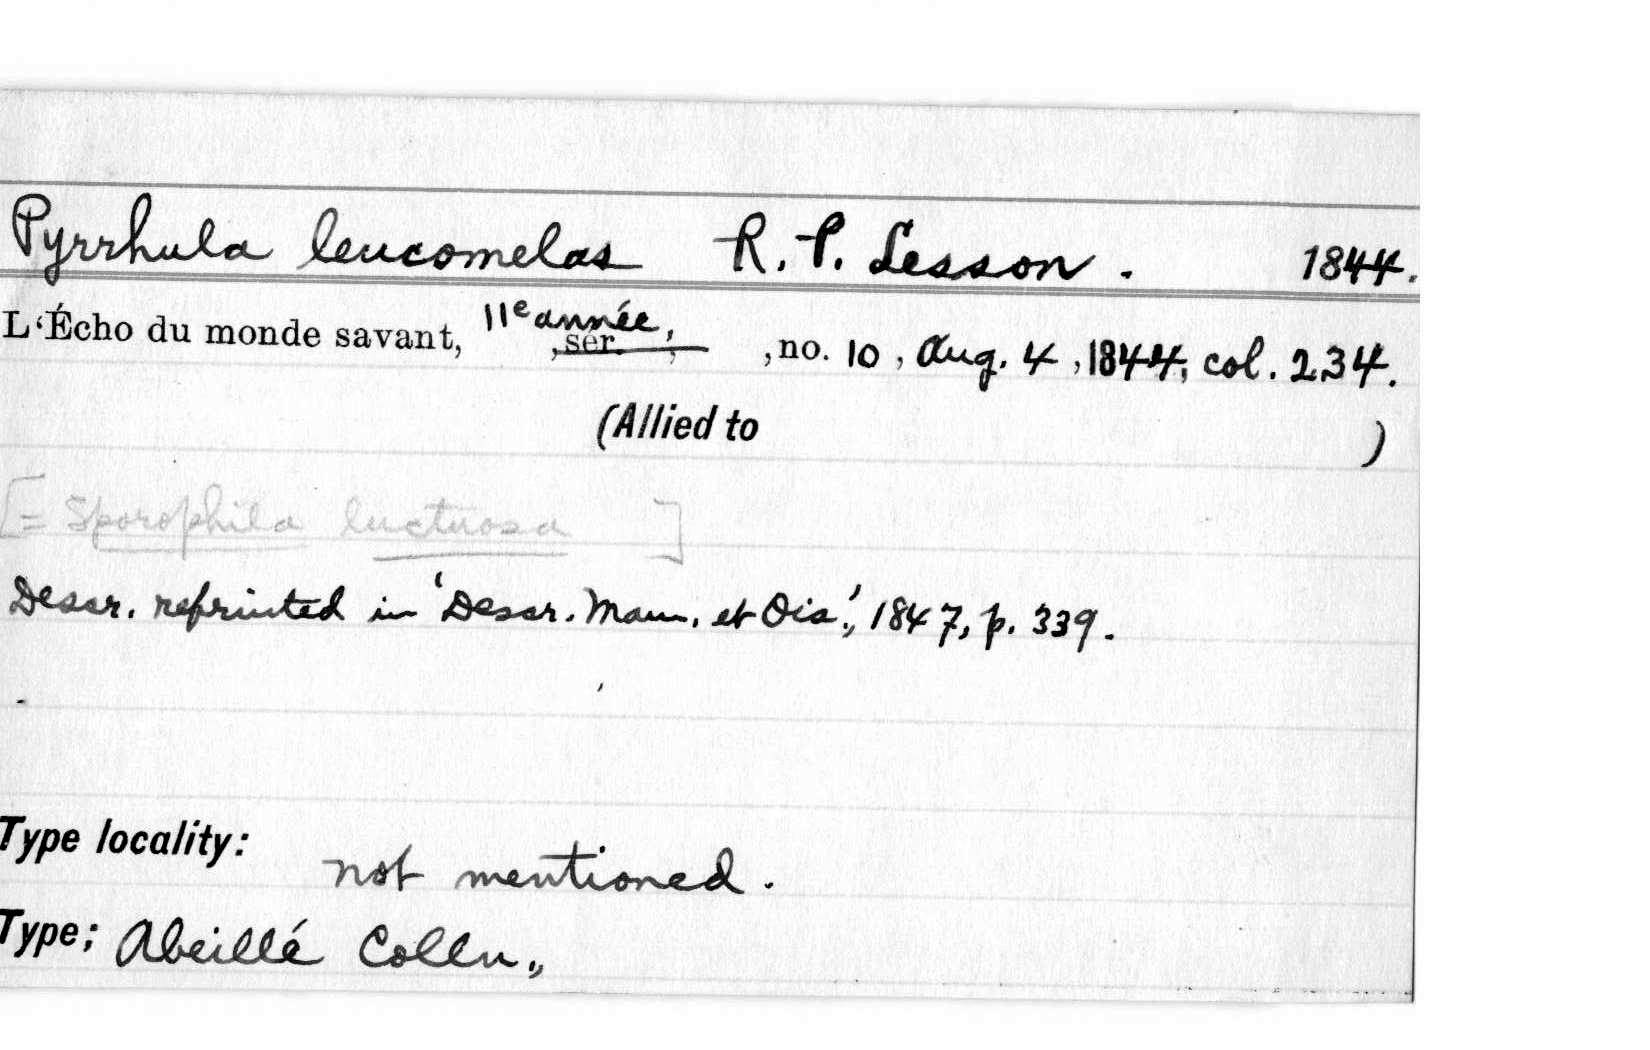 Pyrrhula leucomelas R. P. Lesson. 1844.
L‘Écho du monde savant, 11e année, ,sér. , ,no. 10, Aug. 4, 1844, col. 234.
(Allied to )
[= Sporophila luctuosa ]
Descr. reprinted in ‘Descr. Mam. et Ois.’, 1847, p. 339.
Type locality: not mentioned.
Type; Abeillé Colln.,